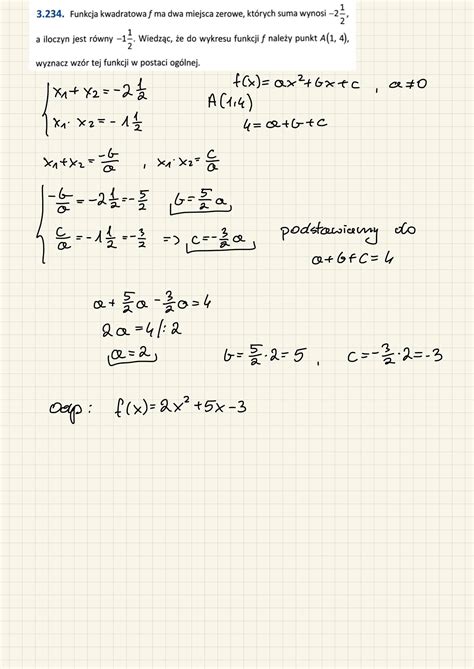 3.234. Funkcja kwadratowa f ma dwa miejsca zerowe, których suma wynosi −2 1/2,
a iloczyn jest równy −1 1/2. Wiedząc, że do wykresu funkcji f należy punkt A(1, 4),
wyznacz wzór tej funkcji w postaci ogólnej.
x₁ + x₂ = −2 1/2
f(x) = ax² + bx + c , a ≠ 0
x₁ · x₂ = −1 1/2
A(1,4)
4 = a + b + c
x₁ + x₂ = −b/a , x₁ · x₂ = c/a
−b/a = −2 1/2 = −5/2 b = 5/2 a
c/a = −1 1/2 = −3/2 => c = −3/2 a podstawiamy do
a + b + c = 4
a + 5/2 a − 3/2 a = 4
2a = 4 /: 2
a = 2 b = 5/2 · 2 = 5 , c = −3/2 · 2 = −3
Odp: f(x) = 2x² + 5x − 3